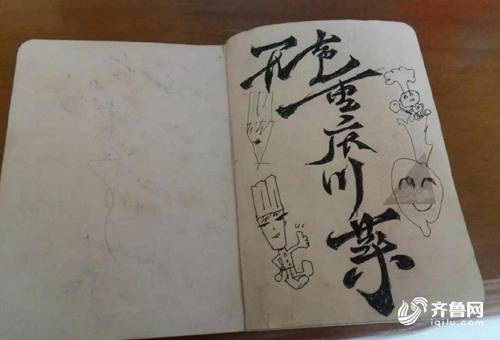 重庆川菜
齐鲁网
iqilu.com